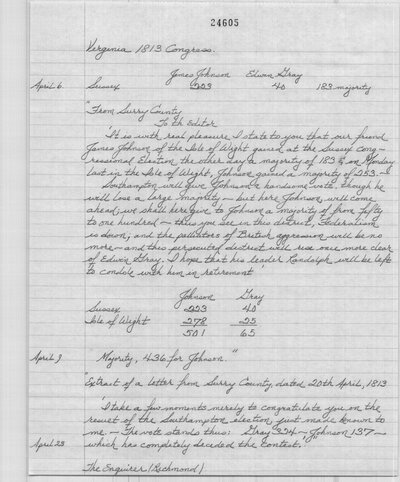 24605
Virginia 1813 Congress.
James Johnson Edwin Gray
April 6 Sussex 223 40 183 majority
"From Surry County
To th Editor
'It is with real pleasure I state to you that our friend
James Johnson of the Isle of Wight gained at the Sussex Cong-
ressional Election the other day a majority of 183 & on Monday
last in the Isle of Wight, Johnson gained a majority of 253.—
Southampton will give Johnson a handsome vote, though he
will lose a large majority — but here Johnson will come
ahead; we shall here give to Johnson a majority of from fifty
to one hundred — thus you see in this district, Federalism
is down, and the palliators of British aggression will be no
more — and this persecuted district will rise once more clear
of Edwin Gray. I hope that his leader Randolph will be left
to condole with him in retirement'
Johnson Gray
Sussex 223 40
Isle of Wight 278 25
501 65
April 9 Majority, 436 for Johnson."
"Extract of a letter from Surry County, dated 20th April, 1813
'I take a few moments merely to congratulate you on the
result of the Southampton election just made known to
me. — The vote stands thus: Gray 374 — Johnson 137 —
April 23 which has completely decided the contest.'"
The Enquirer (Richmond)